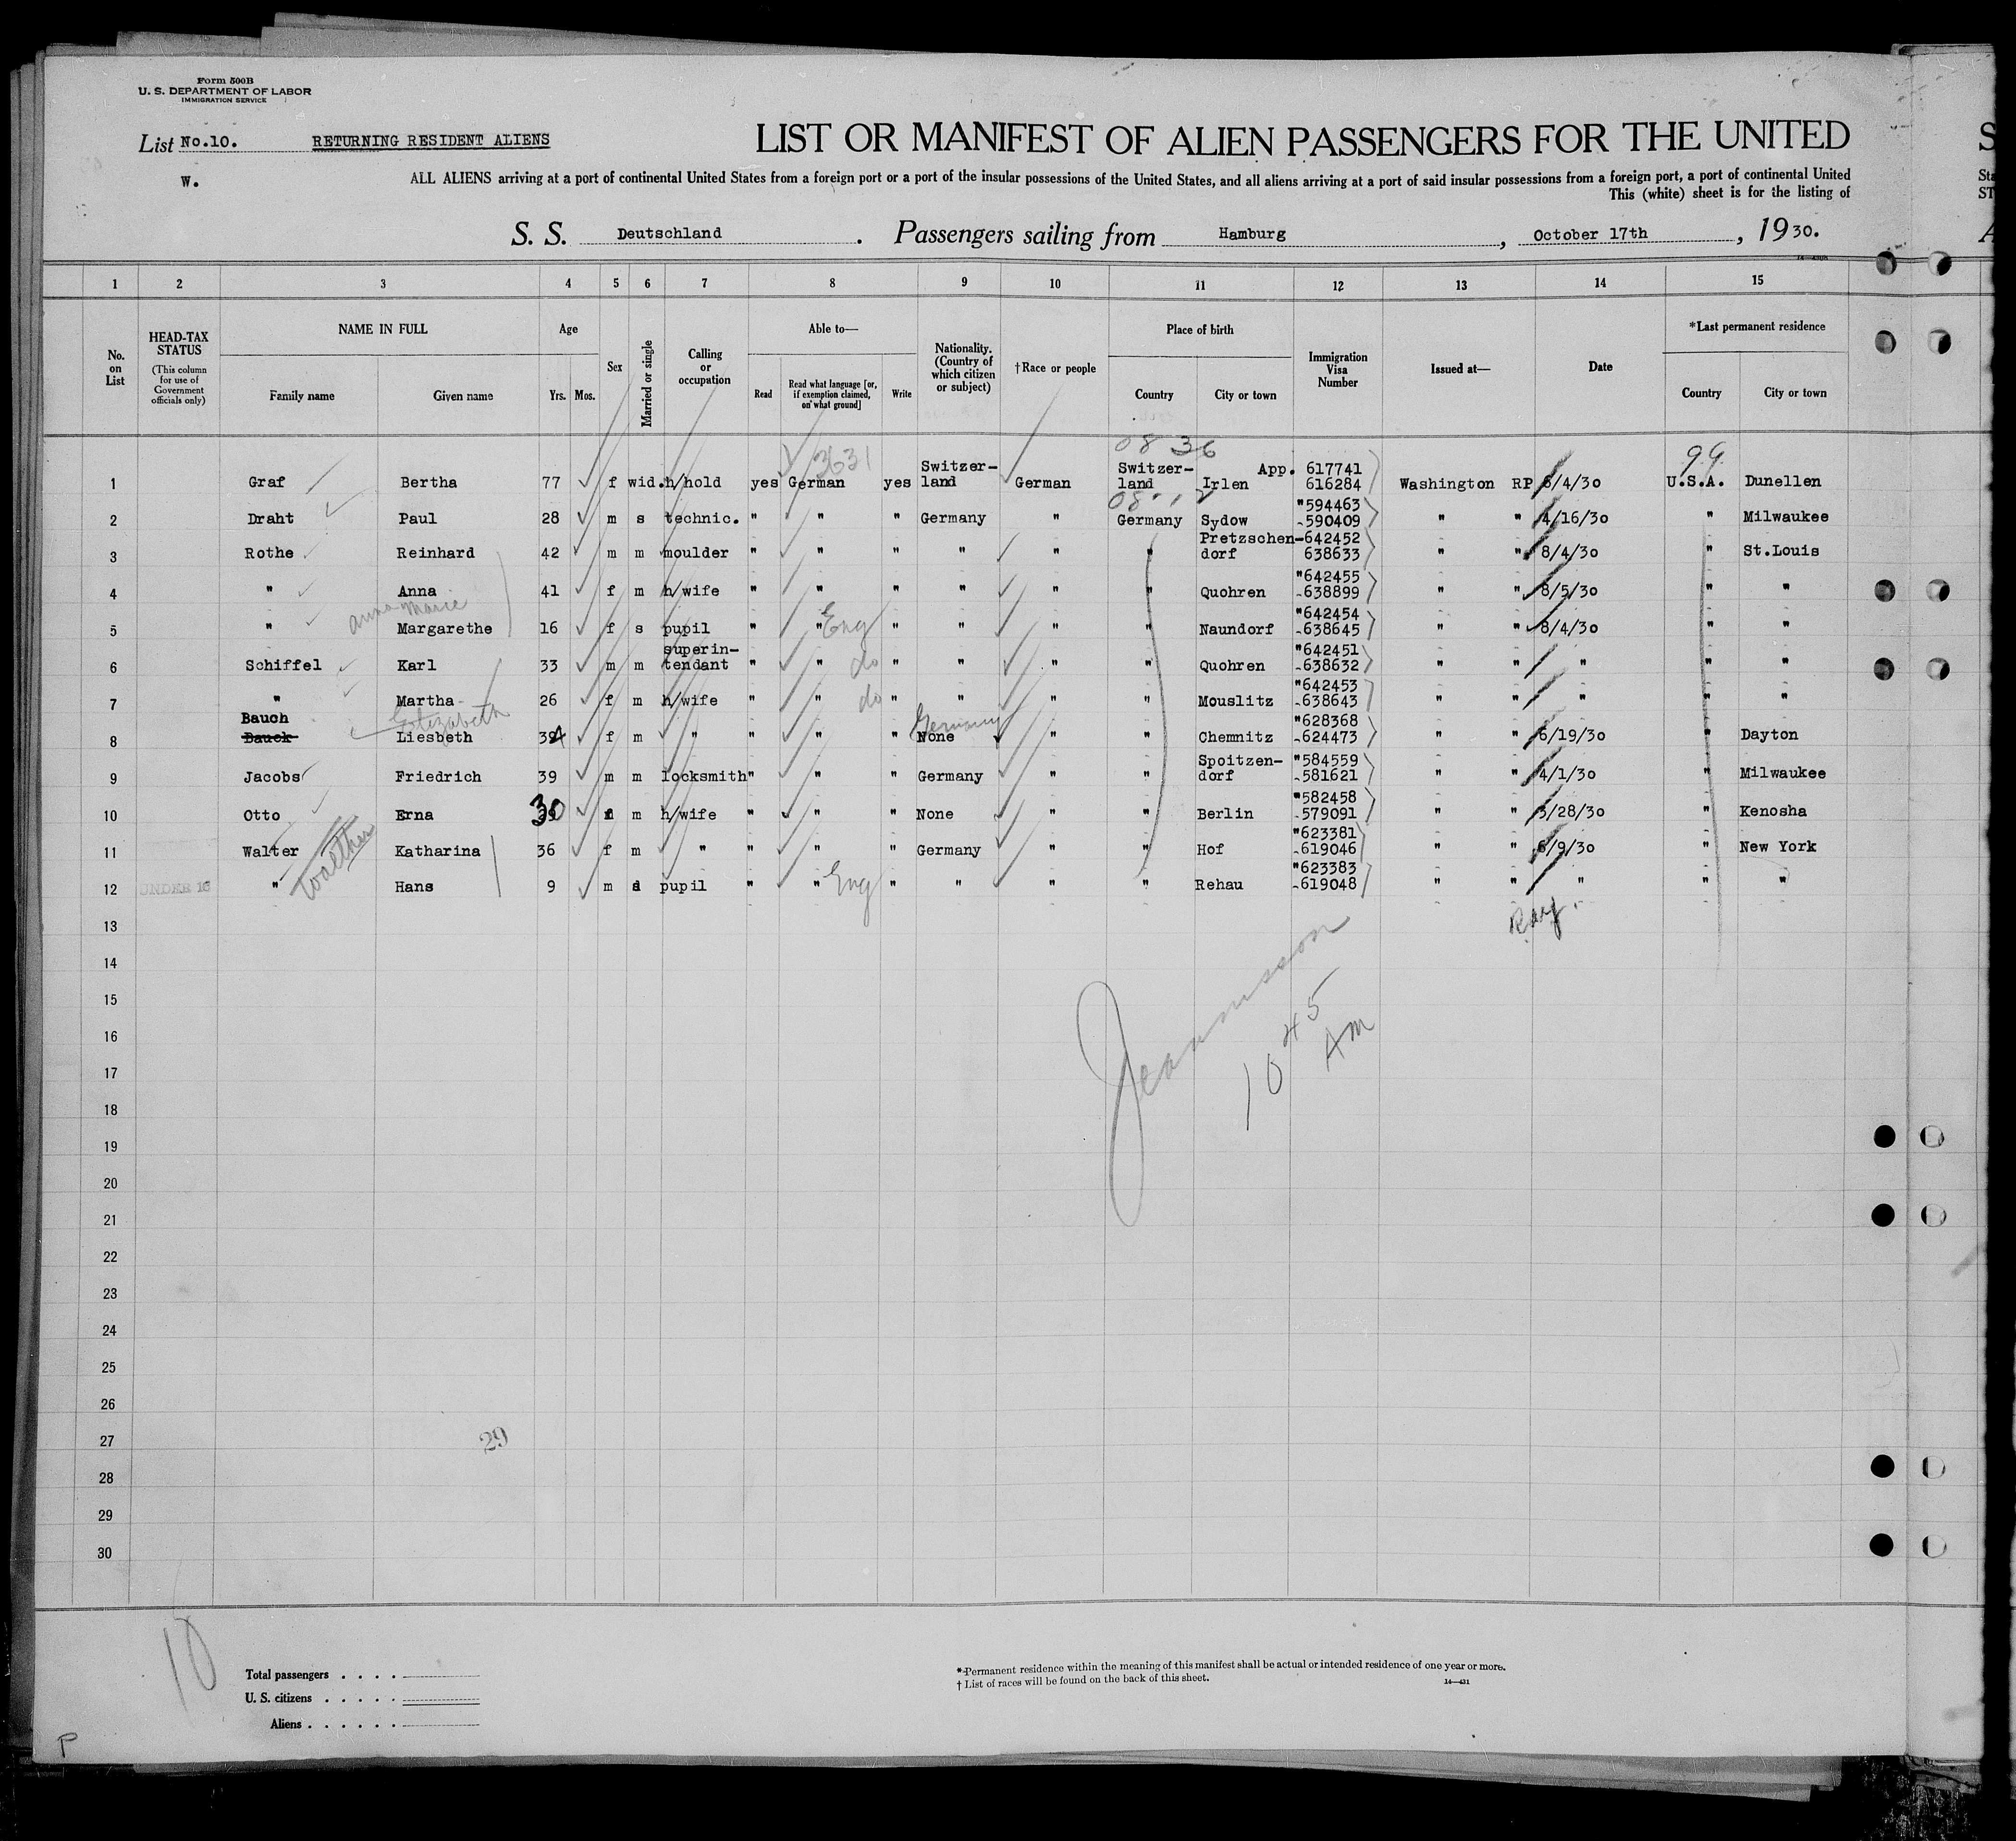 Form 500B
U. S. DEPARTMENT OF LABOR
IMMIGRATION SERVICE
List No.10. RETURNING RESIDENT ALIENS
W.
LIST OR MANIFEST OF ALIEN PASSENGERS FOR THE UNITED
ALL ALIENS arriving at a port of continental United States from a foreign port or a part of the insular possessions of the United States, and all aliens arriving at a port of said insular possessions from a foreign port, a port of continental United
This (white) sheet is for the listing of
S. S. Deutschland. Passengers sailing from Hamburg, October 17th, 1930.
1 2 3 4 5 6 7 8 9 10 11 12 13 14 15
No. on List
HEAD-TAX STATUS
(This column for use of Government officials only)
NAME IN FULL
Family name Given name
Age
Yrs. Mos.
Sex
Married or single
Calling or occupation
Able to—
Read
Read what language [or, if exemption claimed, on what ground]
Write
Nationality. (Country of which citizen or subject)
†Race or people
Place of birth
Country City or town
Immigration Visa Number
Issued at—
Date
*Last permanent residence
Country City or town
3631 08 36 99
1 Graf Bertha 77 f wid. h/hold yes German yes Switzer-land German Switzer-land Irlen App. 617741 616284 Washington RP 6/4/30 U.S.A. Dunellen
2 Draht Paul 28 m s technic. " " " Germany " Germany Sydow "594463 -590409 " " 4/16/30 " Milwaukee
3 Rothe Reinhard 42 m m moulder " " " " " " Pretzschen-dorf 642452 638633 " " 8/4/30 " St.Louis
4 " Anna 41 f m h/wife " " " " " " Quohren "642455 -638899 " " 8/5/30 " "
anna marie
5 " Margarethe 16 f s pupil " " Eng " " " " Naundorf "642454 -638645 " " 8/4/30 " "
6 Schiffel Karl 33 m m superin-tendant " " do " " " " Quohren "642451 -638632 " " " " "
7 " Martha 26 f m h/wife " " do " " " " Mouslitz "642453 -638643 " " " " "
Elizabeth Germany
8 Bauch Bauck Liesbeth 34 f m " " " " None " " Chemnitz "628368 -624473 " " 6/19/30 " Dayton
9 Jacobs Friedrich 39 m m locksmith " " " Germany " " Spoitzen-dorf "584559 -581621 " " 4/1/30 " Milwaukee
10 Otto Erna 30 f m h/wife " " " None " " Berlin "582458 -579091 " " 3/28/30 " Kenosha
11 Walter Walther Katharina 36 f m " " " " Germany " " Hof "623381 -619046 " " 6/9/30 " New York
12 UNDER 16 " Hans 9 m s pupil " " Eng " " " " Rehau "623383 -619048 " " " " "
13
14
15
16
10 45 AM
17
18
19
20
21
22
23
24
25
26
27
29
28
29
30
10
Total passengers . . . .
U. S. citizens . . . . .
Aliens . . . . . .
*Permanent residence within the meaning of this manifest shall be actual or intended residence of one year or more.
† List of races will be found on the back of this sheet.
14—431
P